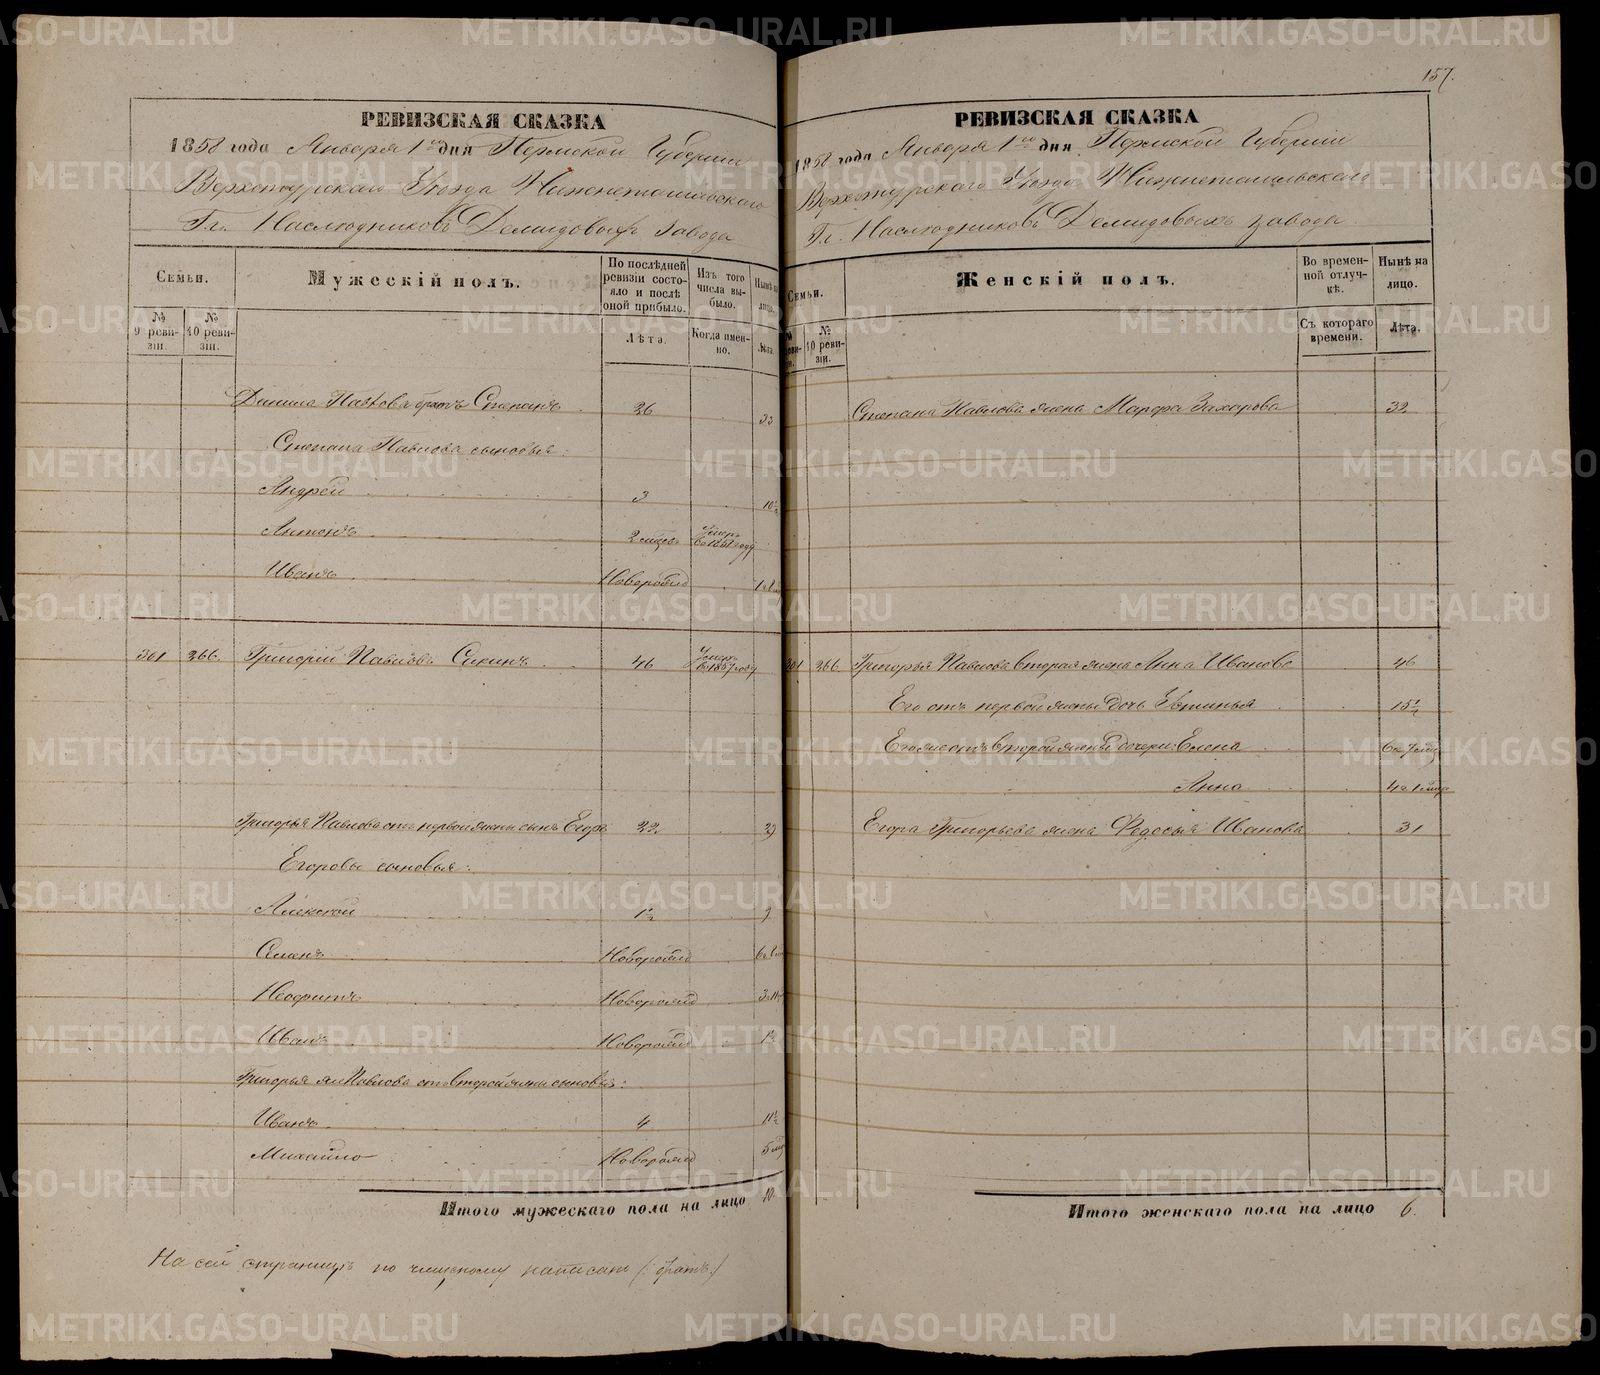 157.
РЕВИЗСКАЯ СКАЗКА
1858 года Января 1го дня Пермской Губернии
Верхотурскаго Уѣзда Нижнетагильскаго
Гг. Наслѣдниковъ Демидовыхъ завода
Семьи.
Мужескій полъ.
По послѣдней ревизіи состояло и послѣ оной прибыло.
Изъ того числа выбыло.
Нынѣ на лицо.
№ 9 ревизіи.
№ 10 ревизіи.
Лѣта.
Когда именно.
Лѣта.
Данила Павлова братъ Степанъ 26 33
Степана Павлова сыновья:
Андрей 3 10½
Антонъ 2 мѣсяц. Умеръ въ 1851 году
Иванъ Новорожд
301 266. Григорій Павловъ Сикинъ 46 Умеръ въ 1857 году
Григорья Павлова отъ первой жены сынъ Егоръ 22 29
Егоровы сыновья:
Алексѣй 1½ 9
Семенъ Новорожд
Неофитъ Новорожд
Иванъ Новорожд 1½
Григорья же Павлова отъ второй жены сыновья:
Иванъ 4 11½
Михайло Новорожд 5 мѣс
Итого мужескаго пола на лицо 10.
На сей страницѣ по чищеному написано (: братъ:)
РЕВИЗСКАЯ СКАЗКА
1858 года Января 1го дня Пермской Губерніи
Верхотурскаго Уѣзда Нижнетагильскаго
Гг. Наслѣдниковъ Демидовыхъ завода
Семьи.
Женскій полъ.
Во временной отлучкѣ.
Нынѣ на лицо.
№ 10 ревизіи.
Съ котораго времени.
Лѣта.
Степана Павлова жена Марфа Захарова 32
301 266 Григорья Павлова вторая жена Анна Иванова 46
Его отъ первой жены дочь Устинья 15½
Его же отъ второй жены дочери: Елена 6 л. 7 мѣс
Анна 4 г. 1 мѣс
Егора Григорьева жена Федосья Иванова 31
Итого женскаго пола на лицо 6.
METRIKI.GASO-URAL.RU